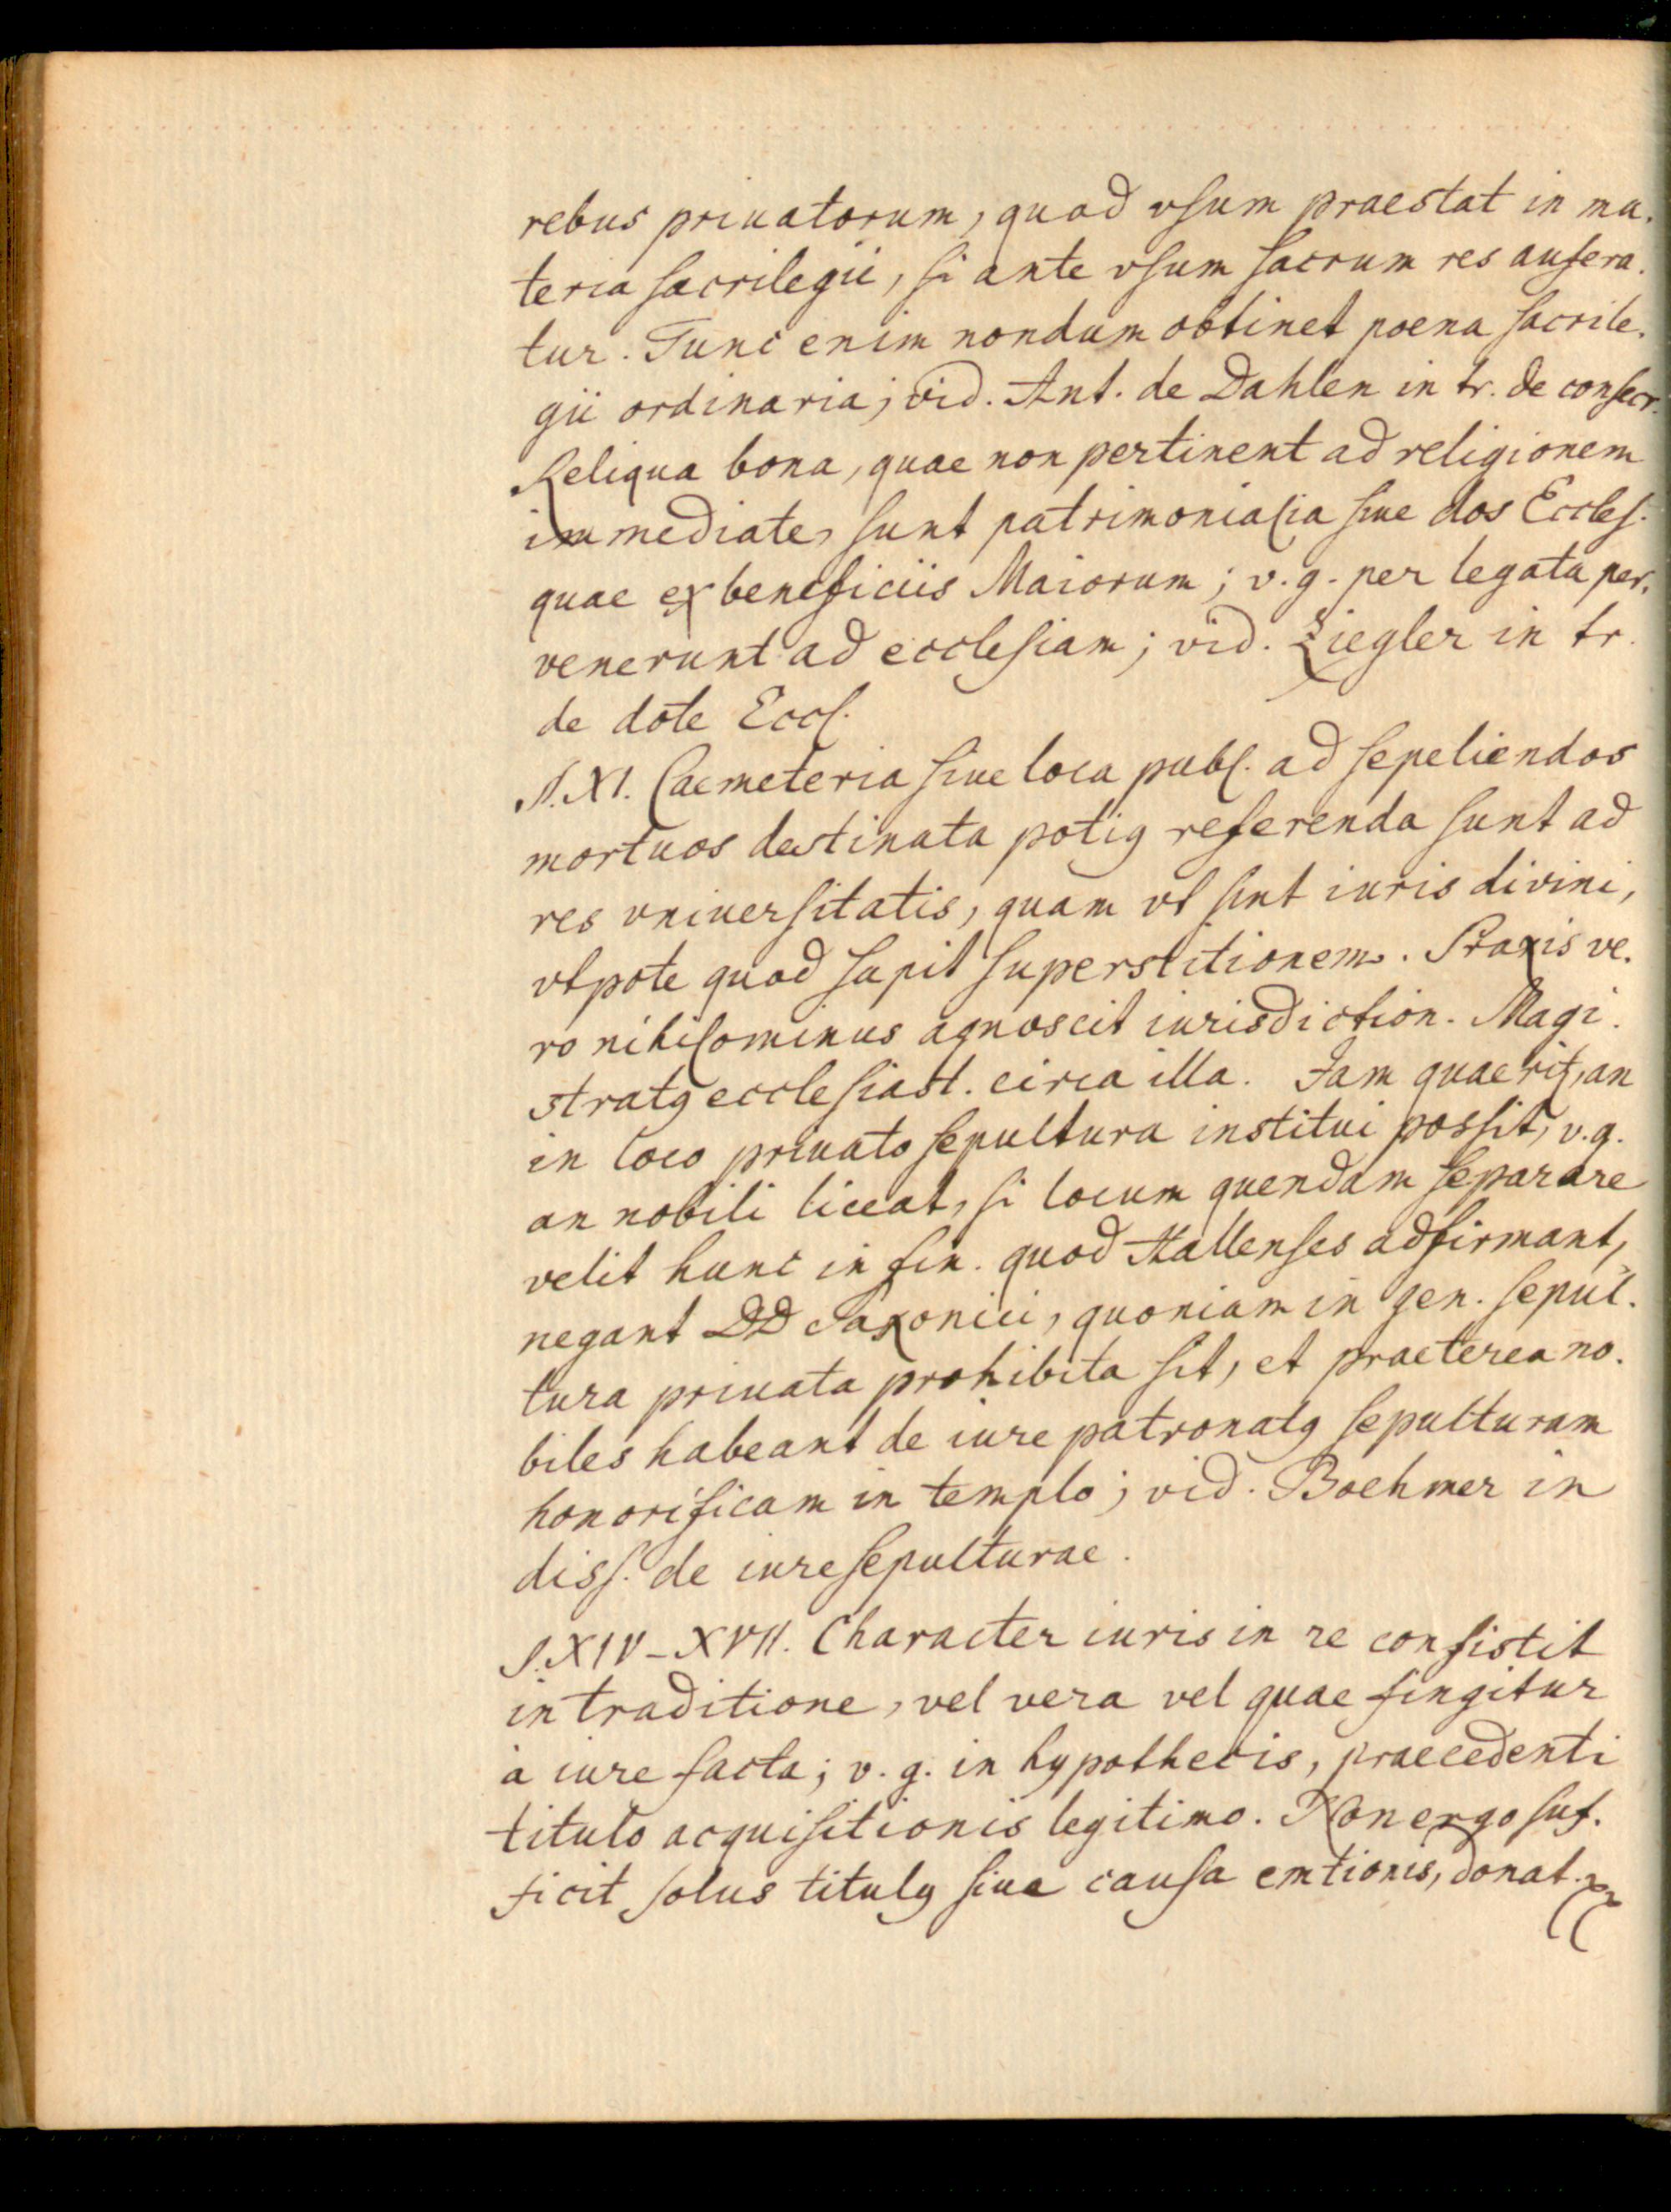 rebus priuatorum, quod vſum praestat in ma.
teria ſacrilegii, ſi ante vſum ſacrum res aufera.
tur. Tunc enim nondum obtinet poena ſacrile.
gii ordinaria; vid. Ant. de Dahlen in tr. de conſecr.
Reliqua bona, quae non pertinent ad religionem
immediate, ſunt patrimonialia ſiue dos Eccleſ.
quae ex beneficiis Maiorum; v.g. per legata per.
venerunt ad eccleſiam; vid. Ziegler in tr.
de dote Eccl.
§. XI. Caemeteria ſiue loca publ. ad ſepeliendos
mortuos destinata potiꝰ referenda ſunt ad
res vniuerſitatis, quam vt ſint iuris divini,
vtpote quod ſapit ſuperstitionem. Praxis ve.
ro nihilominus agnoscit iurisdiction. Magi.
stratꝰ eccleſiast. circa illa. Iam quaerit, an
in loco priuato ſepultura institui posſit, v.g.
an nobili liceat, ſi locum quendam ſeparare
velit hunc in fin. quod Hallenſes adfirmant,
negant DD Saxonici, quoniam in gen. ſepul.
tura priuata prohibita ſit, et praeterea no.
biles habeant de iure patronatꝰ ſepulturam
honorificam in templo; vid. Boehmer in
disſ. de iure ſepulturae.
§. XIV-XVII. Character iuris in re conſistit
in traditione, vel vera vel quae fingitur
à iure facta; v.g. in hypothecis, praecedenti
titulo acquiſitionis legitimo. Non ergo ſuf.
ficit ſolus titulꝰ ſiue cauſa emtionis, donat.